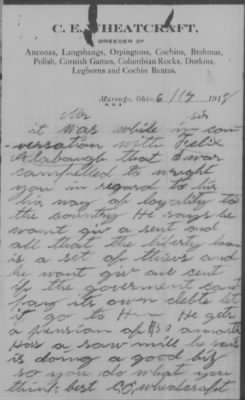 C. E. WHEATCRAFT,
BREEDER OF
Anconas, Langshangs, Orpingtons, Cochins, Brahmas,
Polish, Cornish Games, Columbian Rocks, Dorkins,
Leghorns and Cochin Bantas.
Marengo, Ohio, 6/17 1918
Mr sir
it was while in con
versation with Felix
Alabaugh that I was
compelled to wright
you in regard to his
way of loyality to
the country He says he
want giv a sent and
all that the liberty loan
is a set of thievs and
he want giv one cent
if the goverment cant
pay its own debts let
it go to H— He gets
a pension of $30 a month
Has a saw mill he
is doing a good biz
so you do what you
think best C,E, wheatcraft